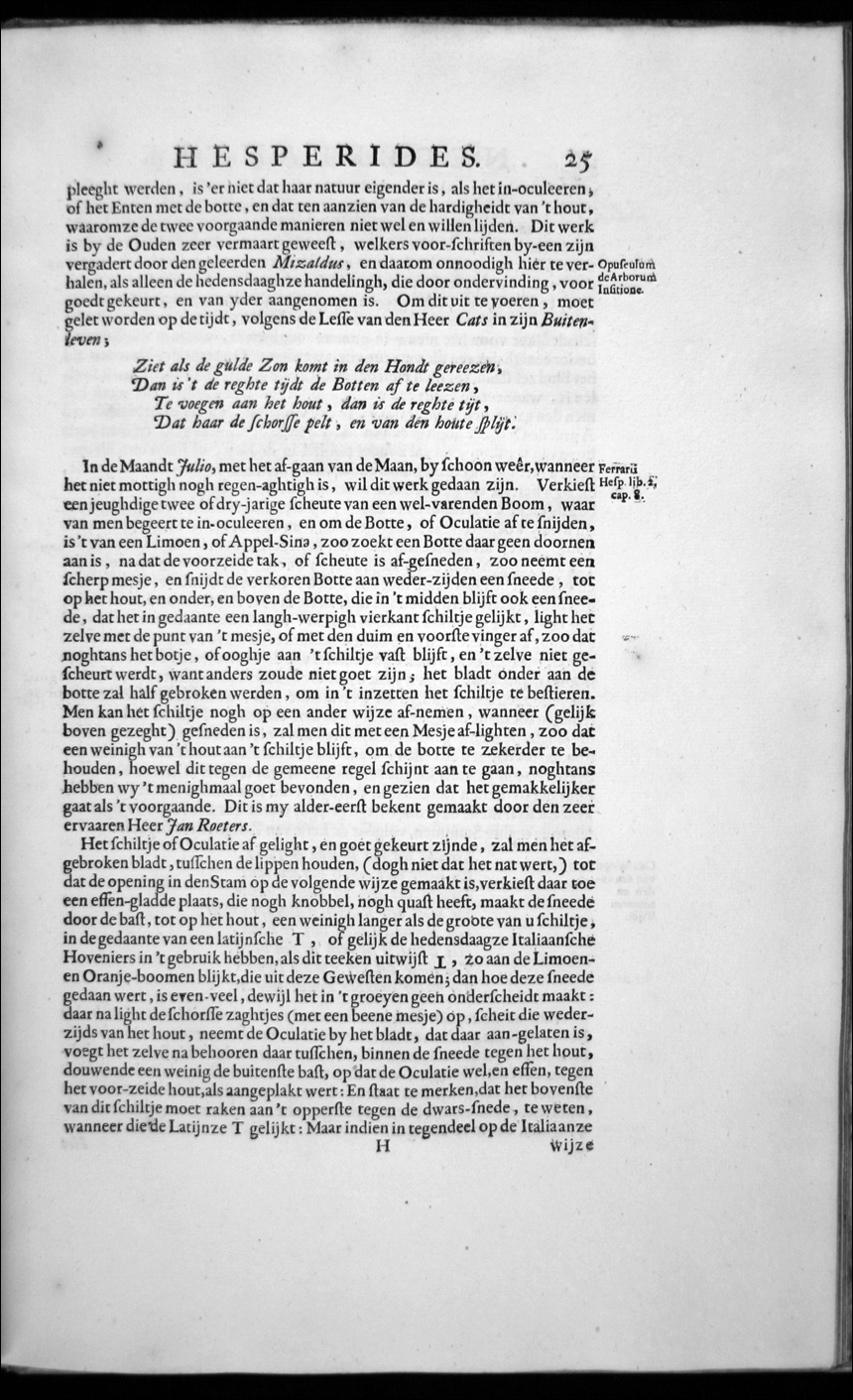 HESPERIDES. 25
pleeght werden, is 'er niet dat haar natuur eigender is, als het in-oculeeren,
of het Enten met de botte, en dat ten aanzien van de hardigheidt van 't hout,
waaromze de twee voorgaande manieren niet wel en willen lijden. Dit werk
is by de Ouden zeer vermaart geweeſt, welkers voor-ſchriften by-een zijn
vergadert door den geleerden Mizaldus, en daarom onnoodigh hier te ver-
halen, als alleen de hedensdaaghze handelingh, die door ondervinding, voor
goedt gekeurt, en van yder aangenomen is. Om dit uit te voeren, moet
gelet worden op de tijdt, volgens de Leſſe van den Heer Cats in zijn Buiten-
leven;
Opuſculom
de Arborum
Inſitione.
Ziet als de gulde Zon komt in den Hondt gereezen,
Dan is 't de reghte tijdt de Botten af te leezen,
Te voegen aan het hout, dan is de reghte tijt,
Dat haar de ſchorſſe pelt, en van den houte ſplijt.
In de Maandt Julio, met het af-gaan van de Maan, by ſchoon weêr, wanneer
het niet mottigh nogh regen-aghtigh is, wil dit werk gedaan zijn. Verkieſt
een jeughdige twee of dry-jarige ſcheute van een wel-varenden Boom, waar
van men begeert te in-oculeeren, en om de Botte, of Oculatie af te ſnijden,
is 't van een Limoen, of Appel-Sina, zoo zoekt een Botte daar geen doornen
aan is, na dat de voorzeide tak, of ſcheute is af-geſneden, zoo neemt een
ſcherp mesje, en ſnijdt de verkoren Botte aan weder-zijden een ſneede, tot
op het hout, en onder, en boven de Botte, die in 't midden blijft ook een ſnee-
de, dat het in gedaante een langh-werpigh vierkant ſchiltje gelijkt, light het
zelve met de punt van 't mesje, of met den duim en voorſte vinger af, zoo dat
noghtans het botje, of ooghje aan 't ſchiltje vaſt blijft, en 't zelve niet ge-
ſcheurt werdt, want anders zoude niet goet zijn; het bladt onder aan de
botte zal half gebroken werden, om in 't inzetten het ſchiltje te beſtieren.
Men kan het ſchiltje nogh op een ander wijze af-nemen, wanneer (gelijk
boven gezeght) geſneden is, zal men dit met een Mesje af-lighten, zoo dat
een weinigh van 't hout aan 't ſchiltje blijft, om de botte te zekerder te be-
houden, hoewel dit tegen de gemeene regel ſchijnt aan te gaan, noghtans
hebben wy 't menighmaal goet bevonden, en gezien dat het gemakkelijker
gaat als 't voorgaande. Dit is my alder-eerſt bekent gemaakt door den zeer
ervaaren Heer Jan Roeters.
Ferrarii
Heſp. lib. 2,
cap. 8.
Het ſchiltje of Oculatie af gelight, en goet gekeurt zijnde, zal men het af-
gebroken bladt, tuſſchen de lippen houden, (dogh niet dat het nat wert,) tot
dat de opening in den Stam op de volgende wijze gemaakt is, verkieſt daar toe
een effen-gladde plaats, die nogh knobbel, nogh quaſt heeft, maakt de ſneede
door de baſt, tot op het hout, een weinigh langer als de groote van u ſchiltje,
in de gedaante van een latijnſche T, of gelijk de hedensdaagze Italiaanſche
Hoveniers in 't gebruik hebben, als dit teeken uitwijſt ⊥, zo aan de Limoen-
en Oranje-boomen blijkt, die uit deze Geweſten komen; dan hoe deze ſneede
gedaan wert, is even-veel, dewijl het in 't groeyen geen onderſcheidt maakt:
daar na light de ſchorſſe zaghtjes (met een beene mesje) op, ſcheit die weder-
zijds van het hout, neemt de Oculatie by het bladt, dat daar aan-gelaten is,
voegt het zelve na behooren daar tuſſchen, binnen de ſneede tegen het hout,
douwende een weinig de buitenſte baſt, op dat de Oculatie wel, en effen, tegen
het voor-zeide hout, als aangeplakt wert: En ſtaat te merken, dat het bovenſte
van dit ſchiltje moet raken aan 't opperſte tegen de dwars-ſnede, te weten,
wanneer die de Latijnze T gelijkt: Maar indien in tegendeel op de Italiaanze
H Wijze